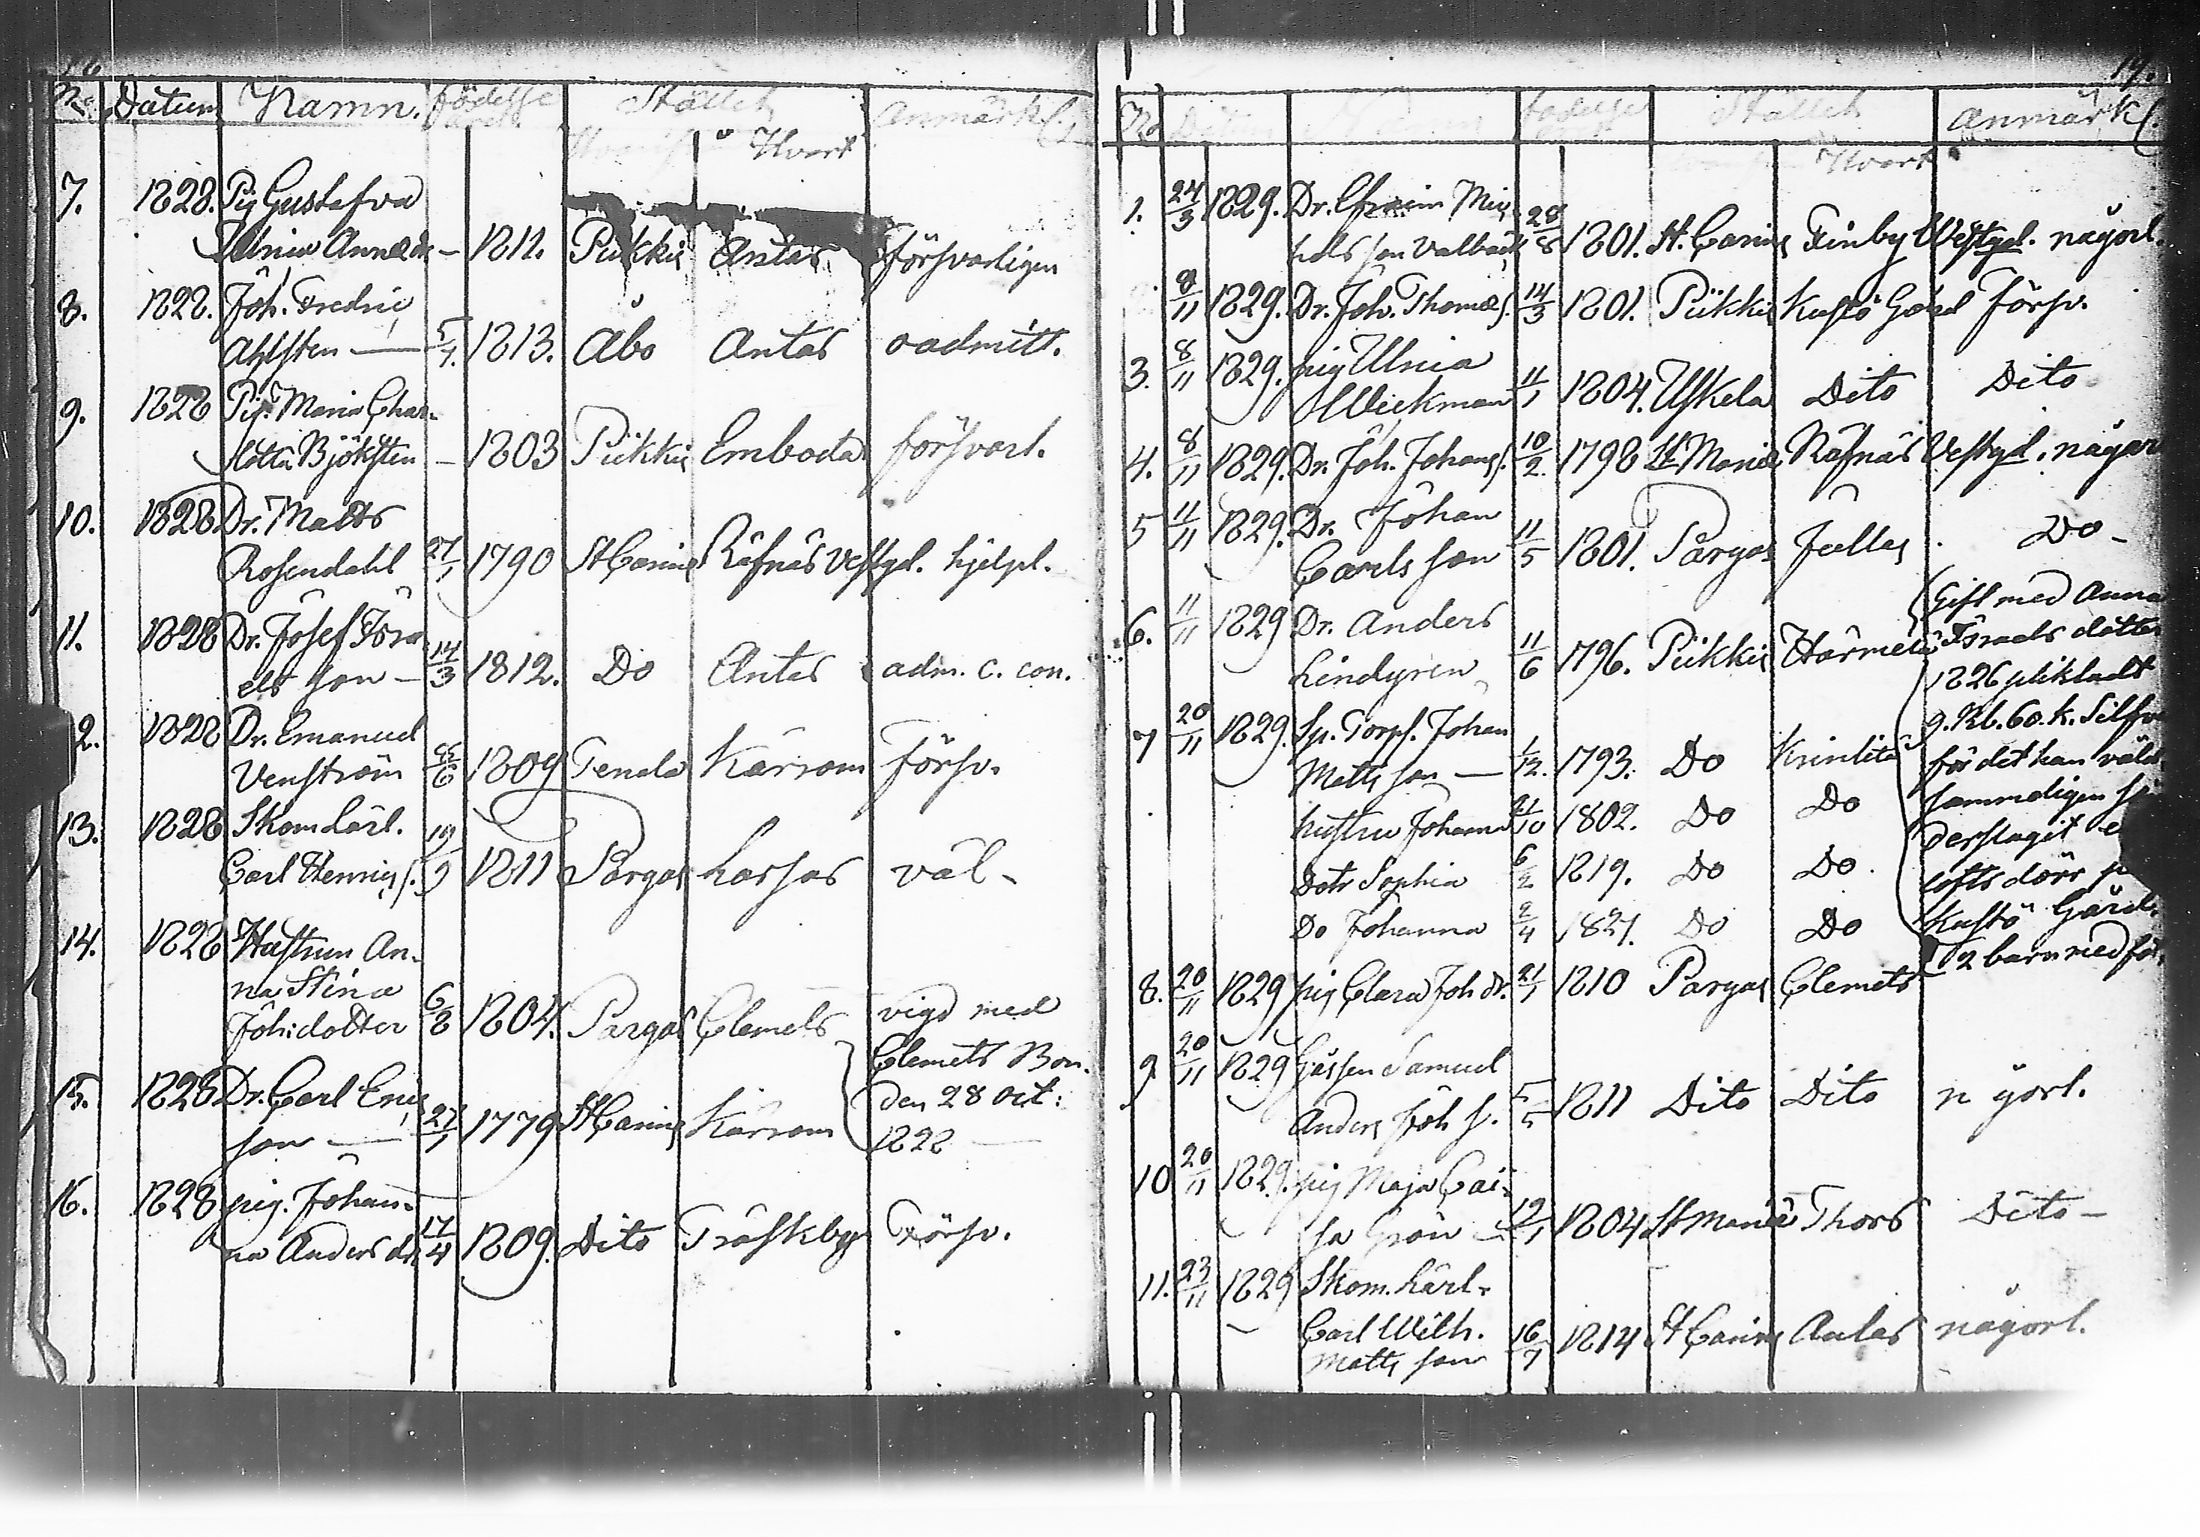 16
No Datum Namn. födelse året Stället Anmärk
Hvart
7. 1828. Pig Gustafva
Ulrica Annæ dr — 1811. Piikkis Antas försvarligen
8. 1828. Joh. Fredric
Ahlsten — 5/7. 1813. Åbo Antas oadmitt.
9. 1828 Pig. Maria Char-
lotta Björksten — 1803 Piikkis Emboda försvarl.
10. 1828 Dr. Matts
Rosendahl 27/1 1790 St Carins Räfnäs Vestgd. hjelpl.
11. 1828 Dr. Josef Isra-
els son — 14/3 1812. Do Antas adm. c. con.
12. 1828 Dr. Emanuel
Venström 1809 Tenala Kärsom försv.
13. 1828 Skom. Lärl.
Carl Henrics s. 19/9 1811 Pargas Lassas väl-
14. 1828 Hustrun An-
na Stina
Joh: dotter 6/8 1804. Pargas Clemets vigd med
Clemets Bon-
den 28 Oct:
1828 —
15. 1828 Dr. Carl Erics
son — 27/1 1779 St Carins Kärsom
16. 1828 pig. Johan-
na Anders dr 17/4 1809. Dito Träskby Försv.
17.
No födelse Stället Anmärk
Hvart
1. 24/3 1829. Dr. Efraim Mic-
hels son Valbäck 28/8 1801. St. Carins Finby Westgd. någorl.
8/11 1829. Dr. Joh. Thomæ s. 14/3 1801. Piikkis Kustö Gård Försv.
3. 8/11 1829. pig Ulrica
Wickman 11/1 1804. Uskela Dito Dito
4. 8/11 1829. Dr. Joh. Johans s. 10/2. 1798 St Mariæ Räfnäs Vestgd. någor
5 11/11 1829. Dr. Johan
Carls son 11/5 1801. Pargas Jullas Do-
6. 11/11 1829 Dr. Anders
Lindgren 11/6 1796. Piikkis Harmela
Gift med Anna
Israels dotter
1826 pliktadt
9. Rb. 60. k. Silfv
för det han vålds
sammeligen sön
derslagit e
lofts dörr p
Kustö Gård.
2 barn med för.
7 20/11 1829. Sp. Torp. Johan
Matts son — 1/12. 1793. Do Krinlitä
hustru Johanna 21/10 1802. Do Do
Dotr Sophia 6/2 1819. Do Do
Do Johanna 2/4 1827. Do Do
8. 20/11 1829 pig Clara Joh dr. 21/1 1810 Pargas Clemets
9 20/11 1829 Gossen Samuel
Anders Joh s. 5/5 1811 Dito Dito någorl.
10 20/11 1829. pig Maja Cai-
sa Grön — 1804 St Mariæ Thors Dito —
11. 23/11 1829 Skom. Lärl.
Carl Wilh.
Matts son 16/7 1814 St Carins Antas någorl.